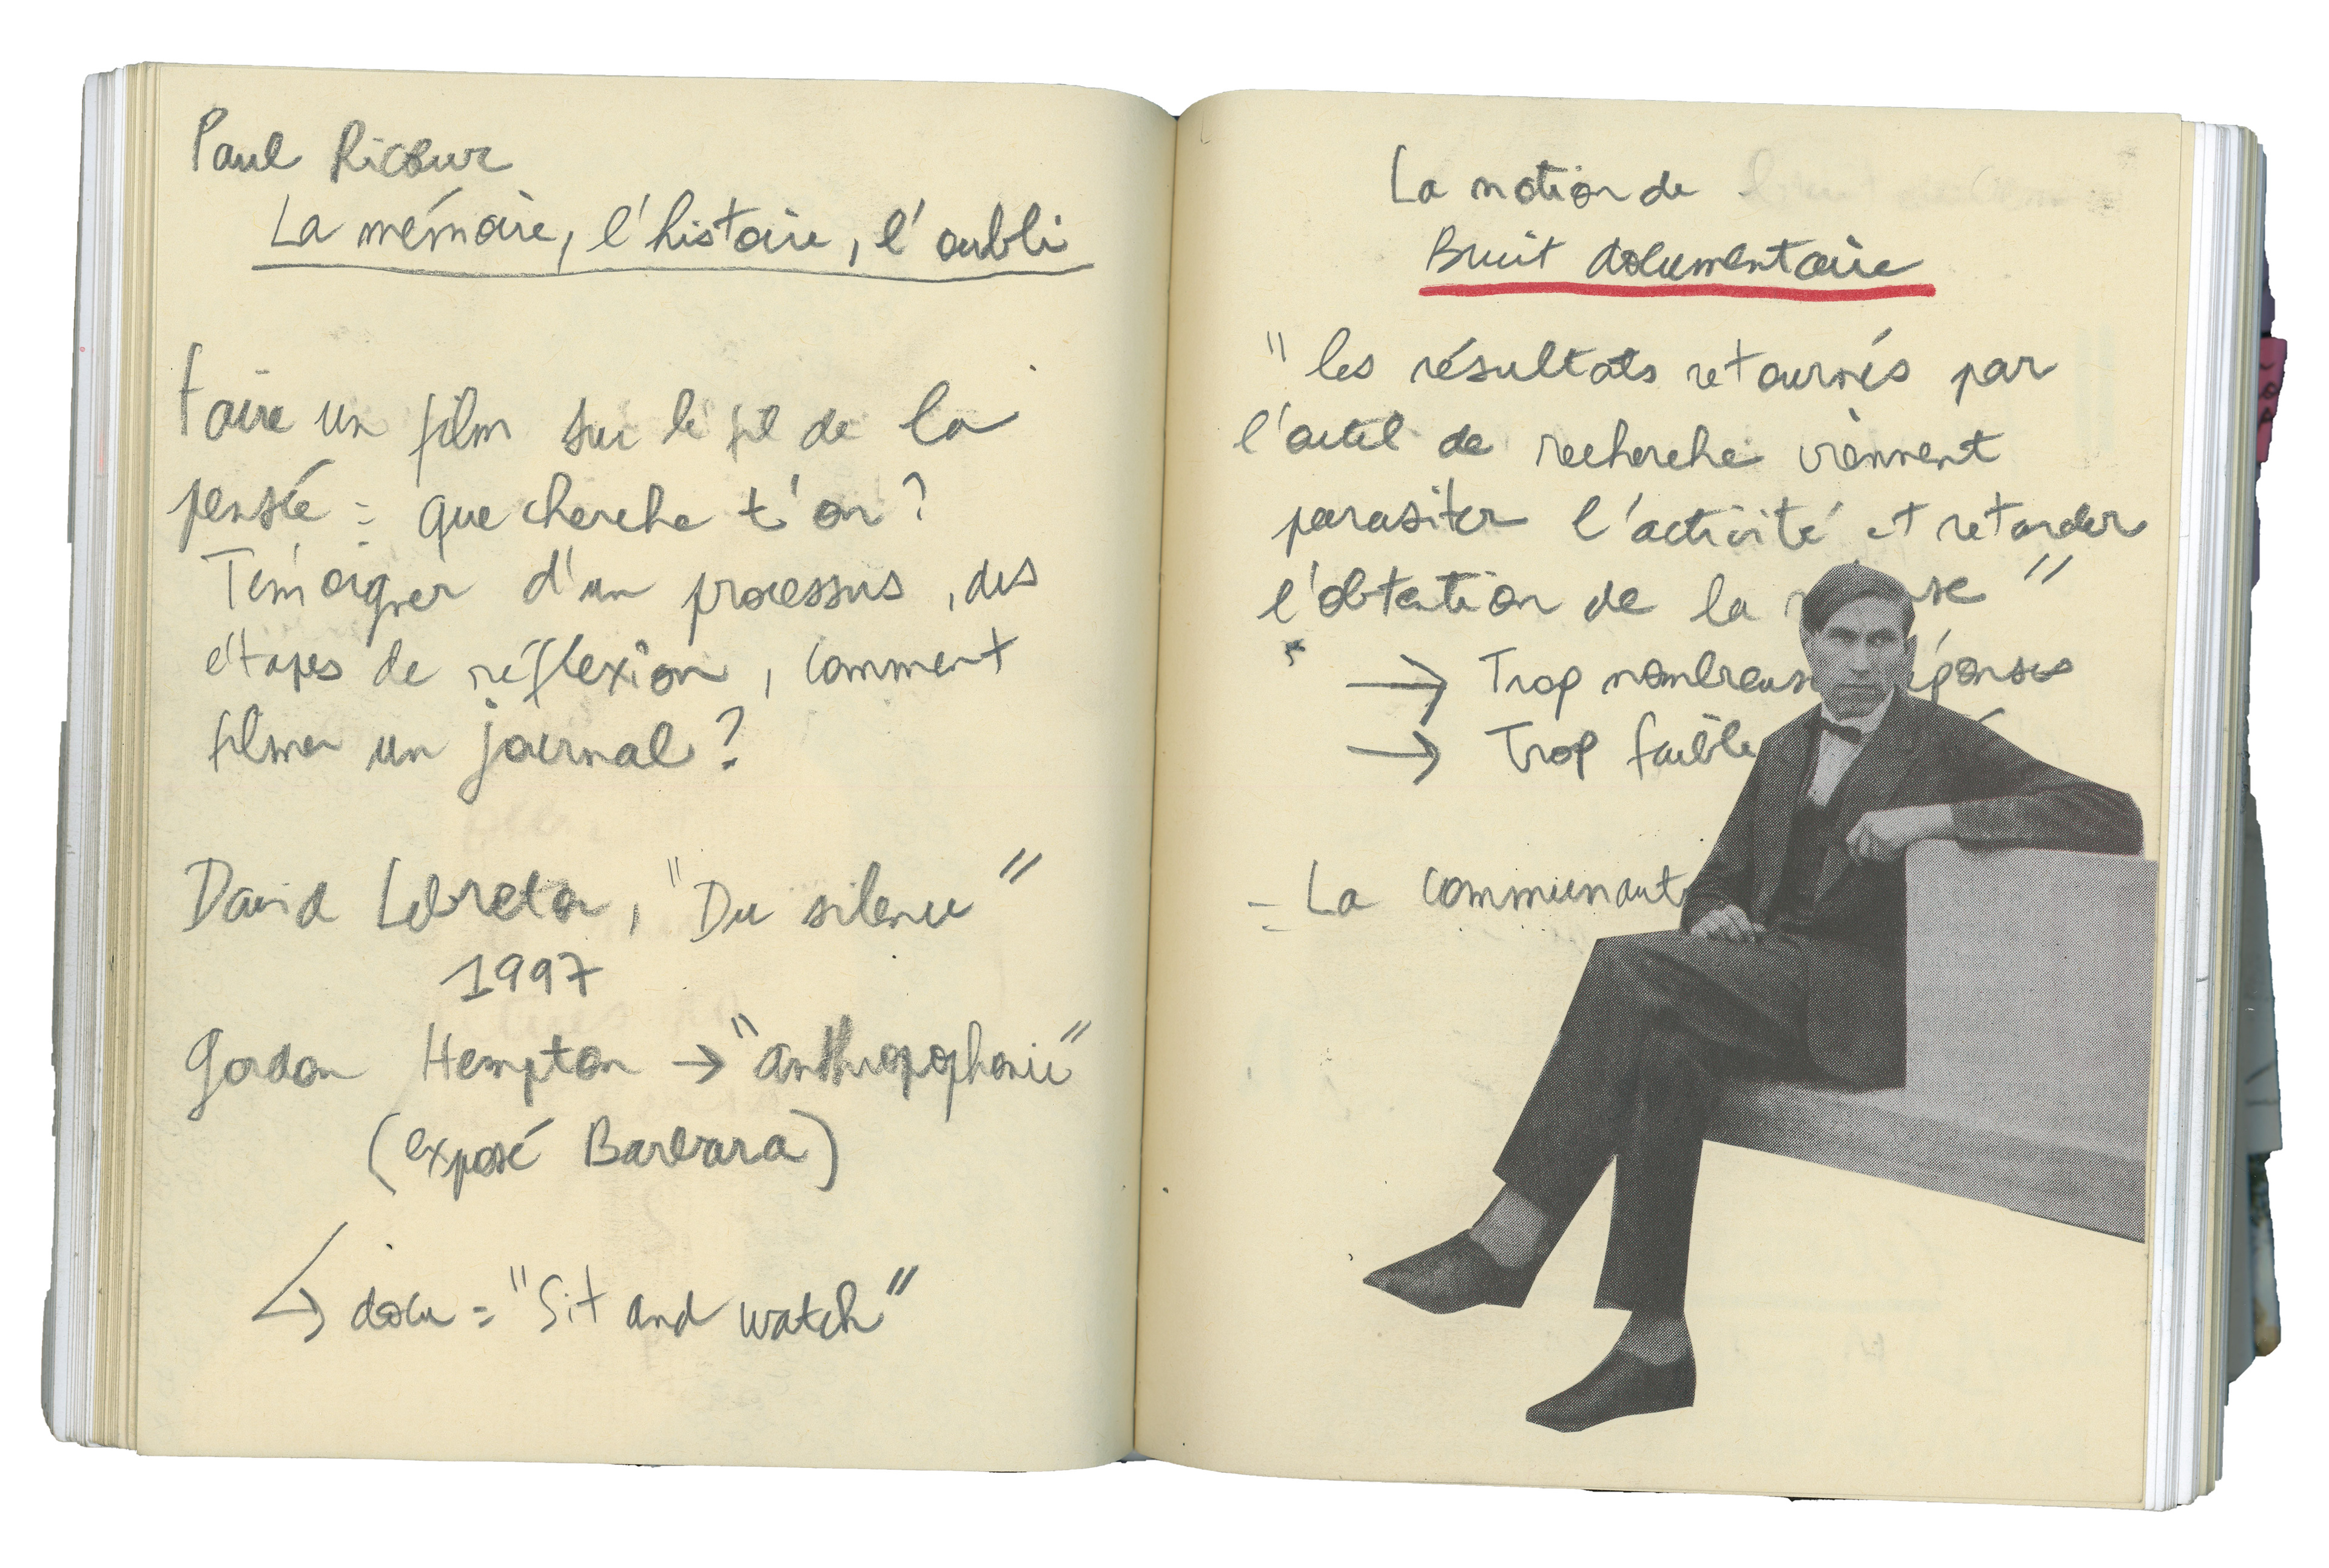 Paul Ricœur
La mémoire, l'histoire, l'oubli
Faire un film sur le fil de la
pensée : que cherche t'on ?
Témoigner d'un processus, des
étapes de réflexion, comment
filmer un journal ?
David Lebreton, "Du silence"
1997
Gordon Hempton → "anthropophonie"
(exposé Barbara)
↳ docu = "Sit and watch"
La notion de
Bruit documentaire
"les résultats retournés par
l'outil de recherche viennent
parasiter l'activité et retarder
l'obtention de la "
→ Trop
→ Trop
- La